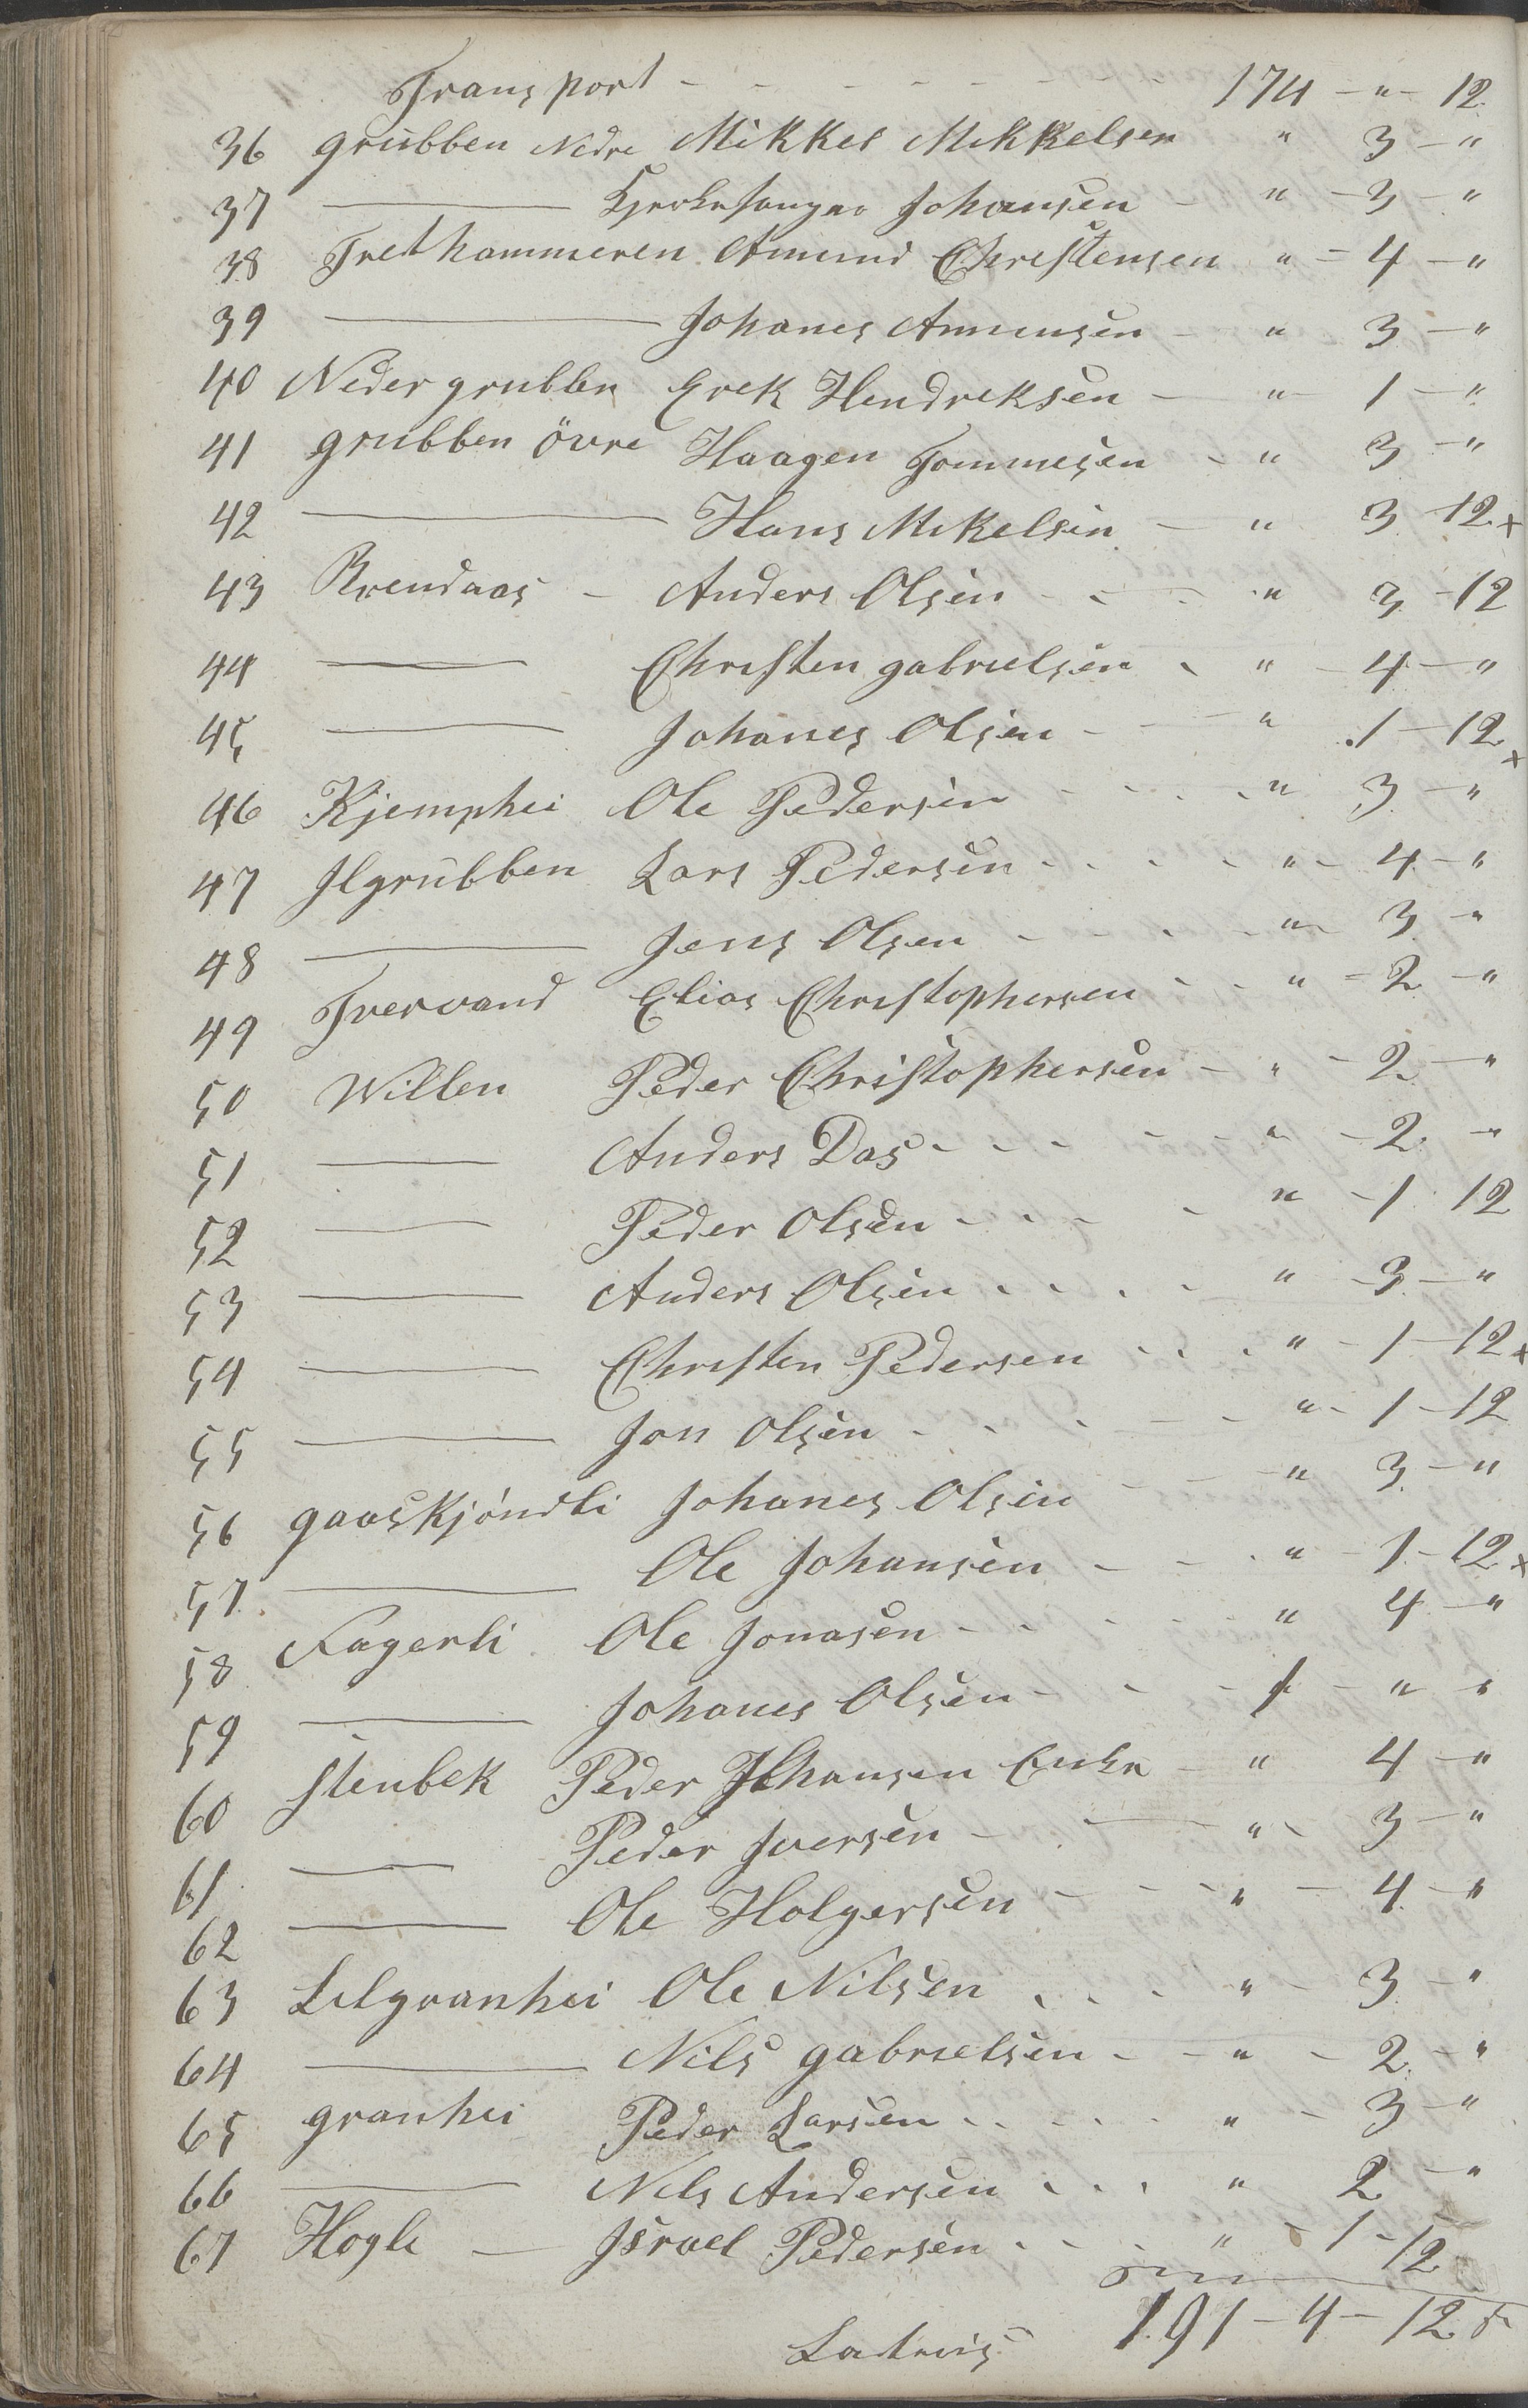 Transport - - - - - 174 - " - 12
36 grubben Nedre Mikkel Mikkelsen " 3 - "
37 ——— Kjerkesanger Johansen - " - 3 - "
38 Trethammeren Amund Christensen " - 4 - "
39 ——— Johanes Ammunsen - " 3 - "
40 Neder grubben Erek Hendreksen - " 1 - "
41 grubben övre Haagen Tommesen - " 3 - "
42 ——— Hans Mikelsen - " 3 - 12 x
43 Brendaas - Anders Olsen - - - " 3 - 12
44 ——— Christen gabrielsen - " - 4 - "
45 ——— Johanes Olsen - - " 1 - 12 x
46 Kjemphei Ole Pedersen - - - - " 3 - "
47 Ilgrubben Lars Pedersen - - - - " - 4 - "
48 ——— Jens Olsen - - - - " - 3 - "
49 Trervand Elias Christophersen - - " - 2 - "
50 Willen Peder Christophersen - " - 2 - "
51 ——— Anders Das - - - - - " - 2 - "
52 ——— Peder Olsen - - - - " - 1 12
53 ——— Anders Olsen - - - - " - 3 - "
54 ——— Christen Pedersen - - - " - 1 - 12 x
55 ——— Jon Olsen - - - - - " - 1 - 12
56 gaaskjöndli Johanes Olsen - - - " 3 - "
57 ——— Ole Johansen - - - " - 1 - 12 x
58 Fagerli Ole Jonasen - - - - - " 4 - "
59 ——— Johanes Olsen - - - 1 - " - "
60 Stenbek Peder Johansen Enke - " 4 - "
61 ——— Peder Iversen - - " - 3 - "
62 ——— Ole Holgersen - - - " - 4 - "
63 Lilgranhei Ole Nilsen - - - " - 3 - "
64 ——— Nils gabrielsen - - " - 2 - "
65 granhei Peder Larsen - - - - " - 3 - "
66 ——— Nils Andersen - - - " 2 - "
67 Hogli — Israel Pedersen - - " - 1 - 12
191 - 4 - 12